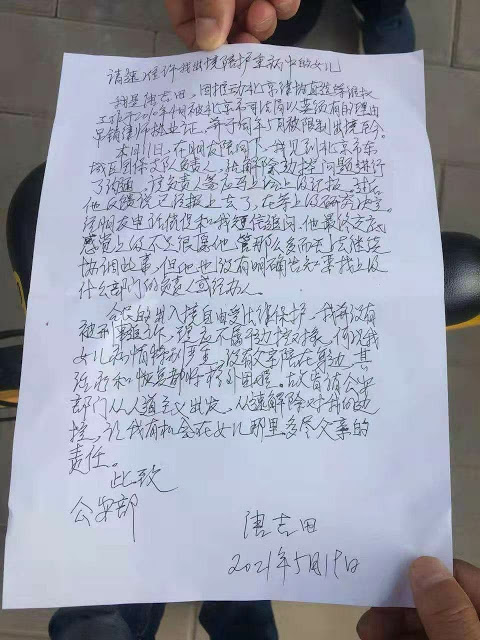 请准许我出境陪护重病中的女儿
我是唐吉田，因推动北京律协直选等维权
工作于2010年4月被北京市司法局以莫须有的理由
吊销律师执业证，并于同年5月被限制出境至今
本月11日，在朋友陪同下，我见到北京市东
城区国保支队负责人，就解除边控问题进行
了沟通，该负责人答应马上给上级汇报，并告
他反馈说已经报上去了，在等上级研究决定
经朋友电话侦促和我短信追问，他最终文字
感觉上级不是很愿他管那么多而去
协调此事，但他也没有明确告知要我上级
什么部门的负责人或经办人。
公民的出入境自由受法律保护，我并没有
被刑事追诉，理应不属于边控对象，何况我
女儿病情特别严重，没有父亲陪在身边，其
治疗和恢复都将格外困难。故肯请公安
部门从人道主义出发，从速解除对我的边
控，让我有机会在女儿那里多尽父亲的
责任。
此致
公安部
唐吉田
2021年5月19日